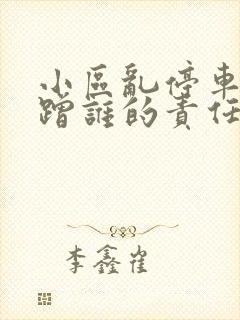 小區亂停車
蹭誰的責任
李鑫崔